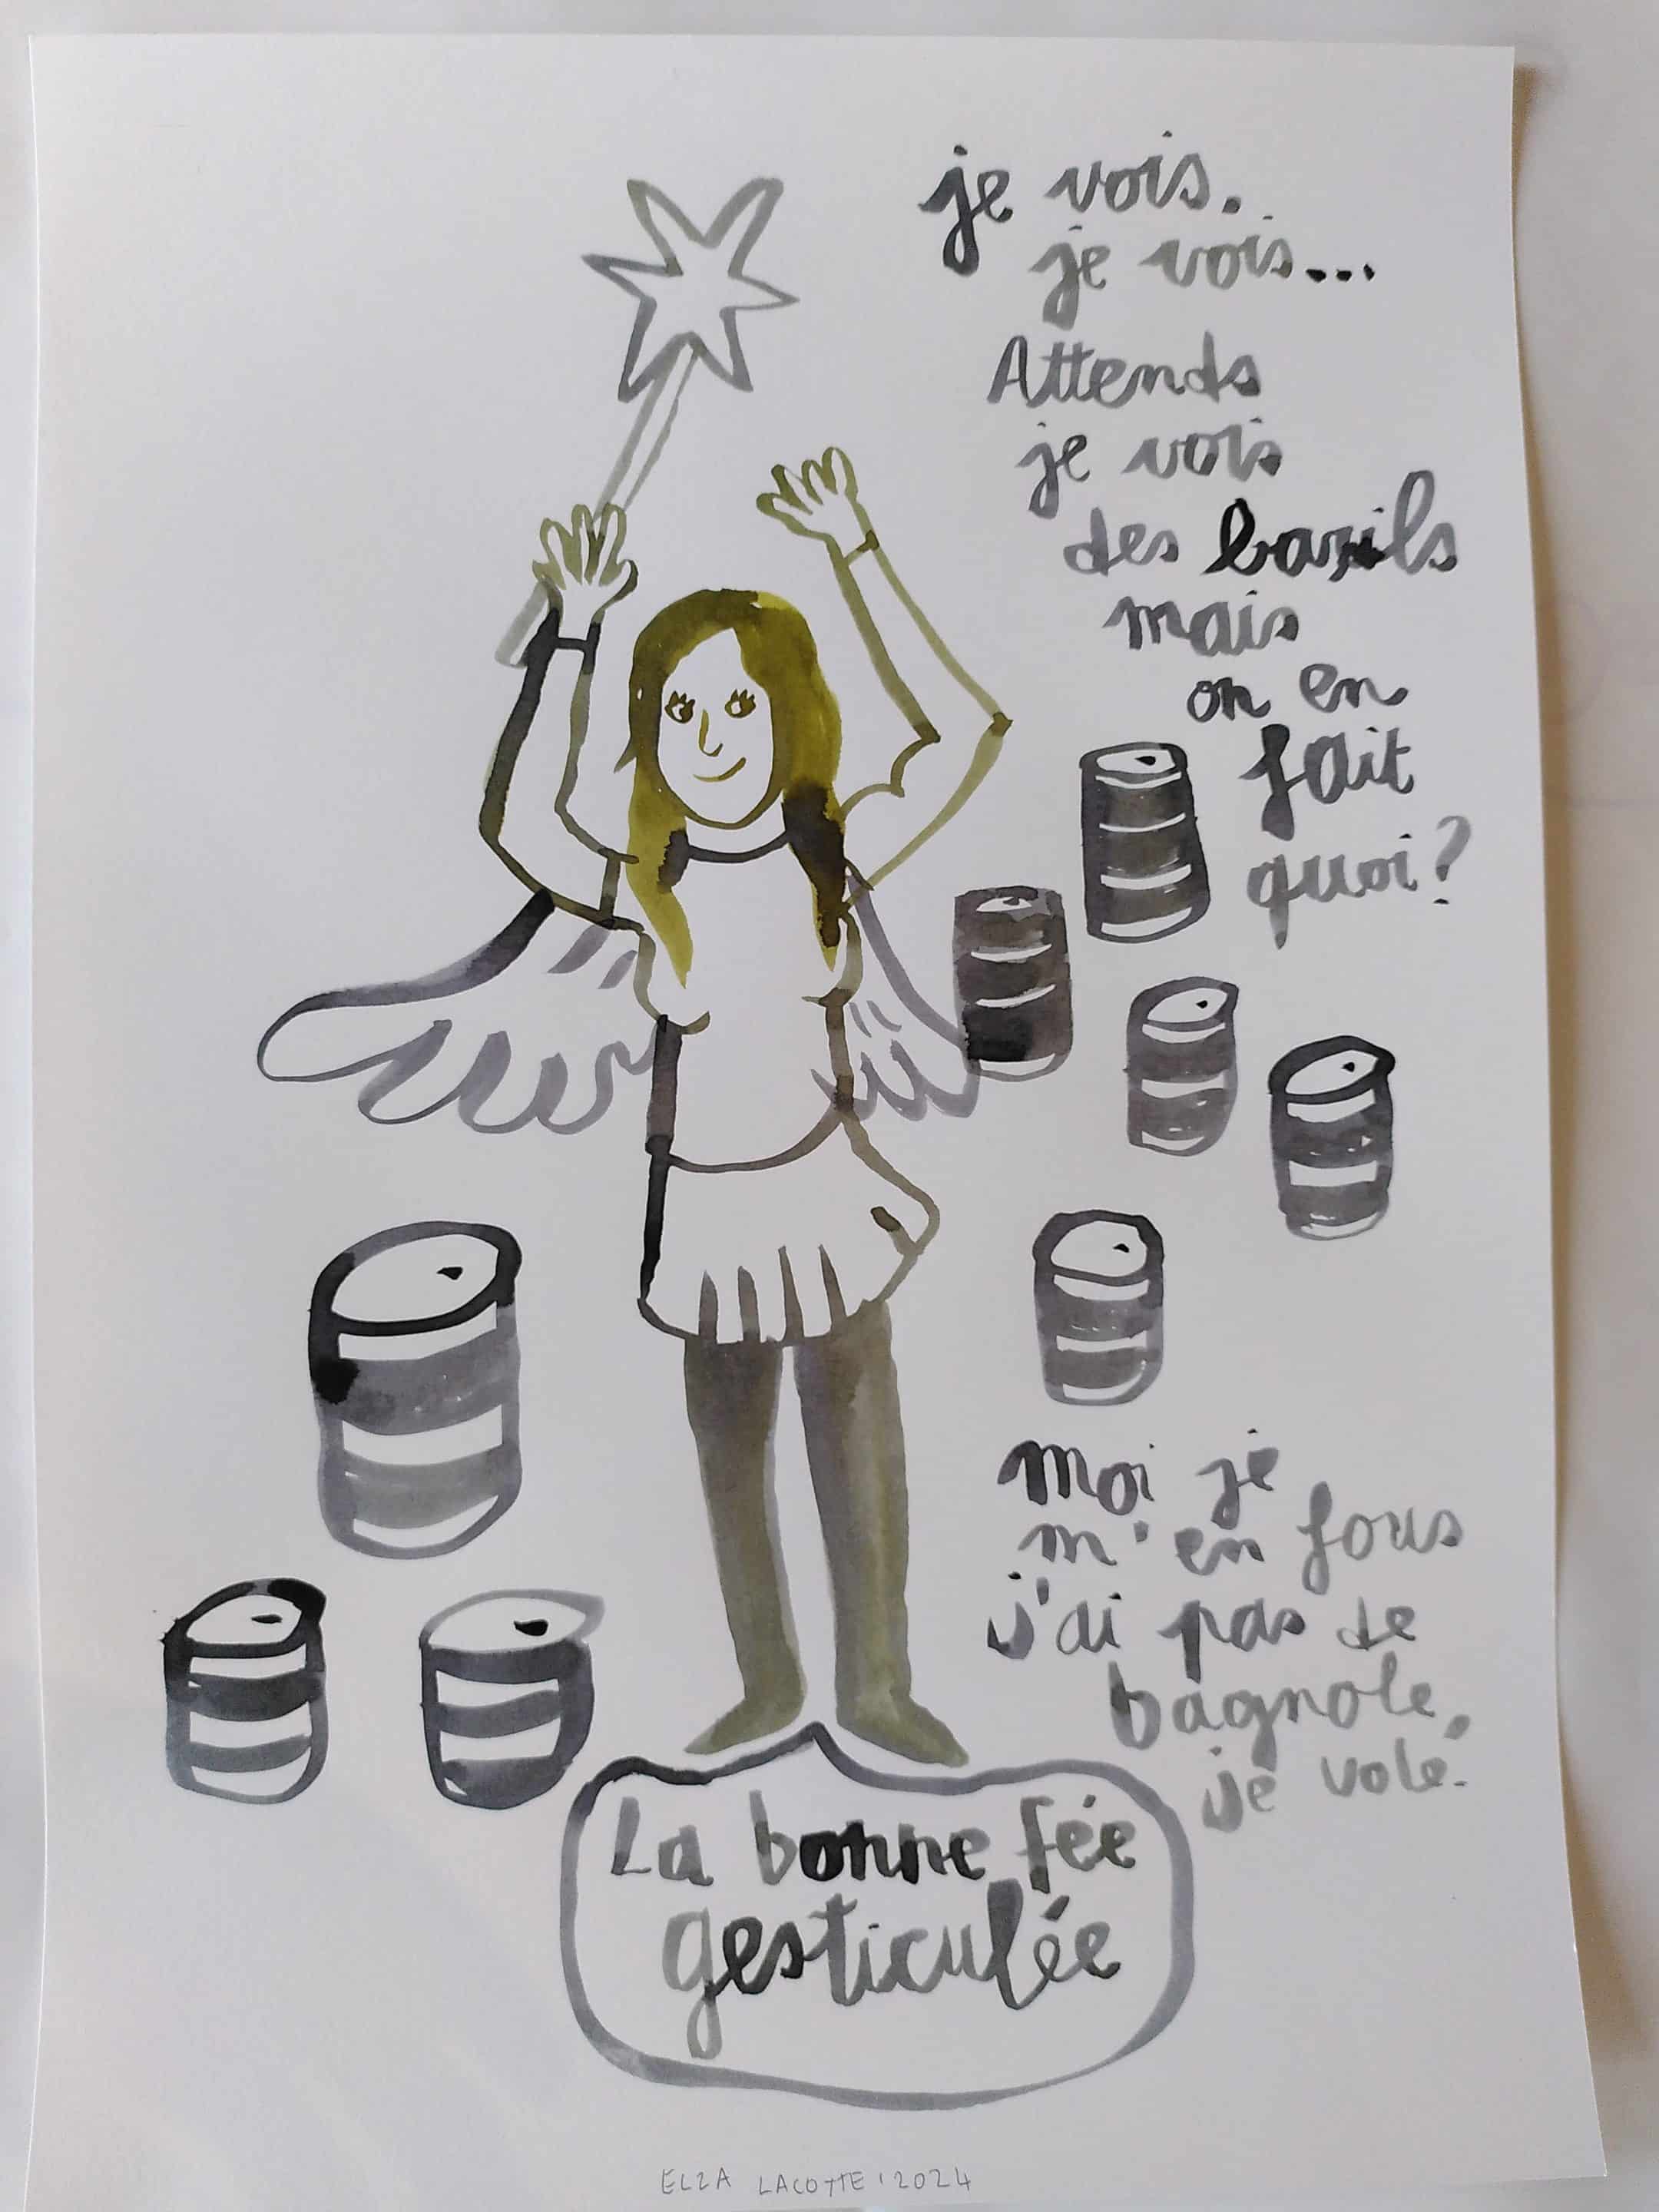 je vois.
je vois...
Attends
je vois
des barils
mais
on en
fait
quoi?
moi je
m'en fous
j'ai pas de
bagnole,
je vole.
La bonne fée
gesticulée
ELZA LACOTTE '2024